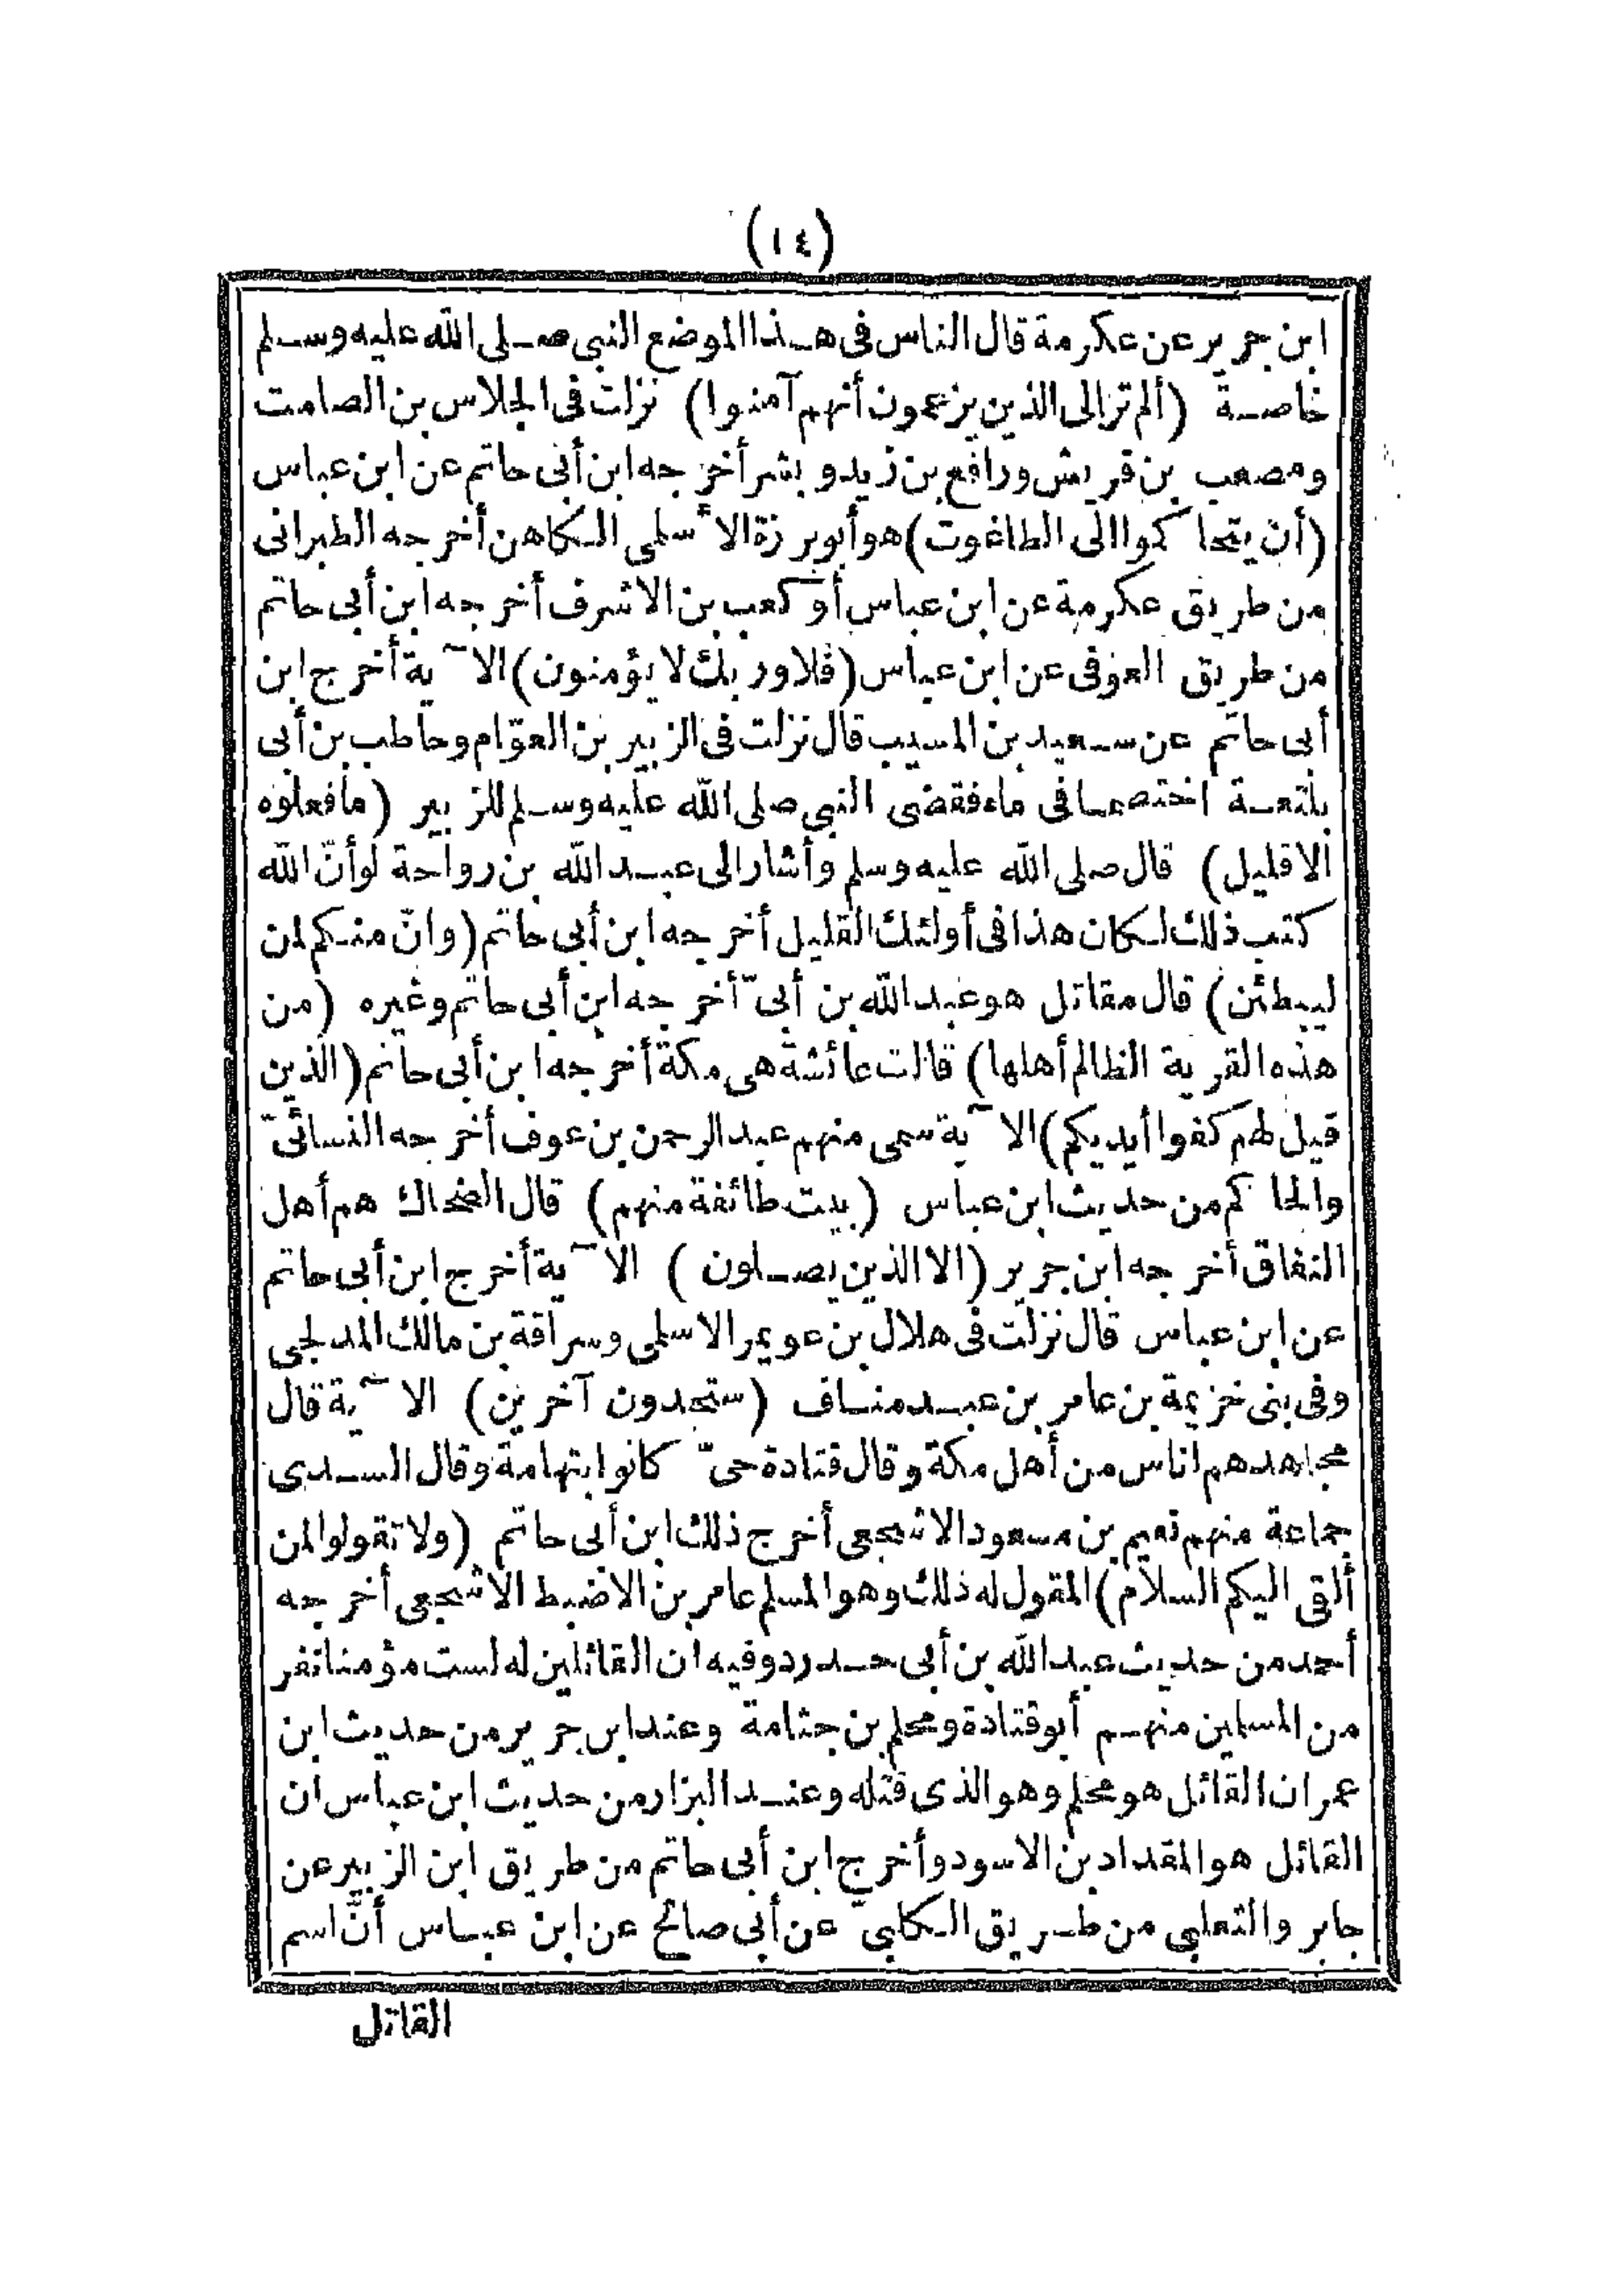 (١٤)
ابن جرير عن عكرمة قال الناس في هذا الموضع النبي صلى الله عليه وسلم
خاصة (ألم تر الى الذين يزعمون أنهم آمنوا) نزلت في الجلاس بن الصامت
ومصعب بن قريش ورافع بن زيد وبشر أخرجه ابن أبي حاتم عن ابن عباس
(أن يتحاكموا الى الطاغوت) هو أبو برزة الأسلمى الكاهن أخرجه الطبرانى
من طريق عكرمة عن ابن عباس أو كعب بن الاشرف أخرجه ابن أبى حاتم
من طريق العوفى عن ابن عباس (فلا وربك لا يؤمنون) الآية أخرج ابن
أبى حاتم عن سعيد بن المسيب قال نزلت فى الزبير بن العوّام وحاطب بن أبى
بلتعة اختصما فى ماء فقضى النبي صلى الله عليه وسلم للزبير (ما فعلوه
الا قليل) قال صلى الله عليه وسلم وأشار الى عبد الله بن رواحة لو أنّ الله
كتب ذلك لكان هذا فى أولئك القليل أخرجه ابن أبى حاتم (وانّ منكم لمن
ليبطئن) قال مقاتل هو عبد الله بن أبىّ أخرجه ابن أبى حاتم وغيره (من
هذه القرية الظالم أهلها) قالت عائشة هى مكة أخرجه ابن أبى حاتم (الذين
قيل لهم كفوا أيديكم) الآية سمى منهم عبد الرحمن بن عوف أخرجه النسائىّ
والحاكم من حديث ابن عباس (بيت طائفة منهم) قال الضحاك هم أهل
النفاق أخرجه ابن جرير (الا الذين يصلون) الآية أخرج ابن أبى حاتم
عن ابن عباس قال نزلت فى هلال بن عويمر الاسلمى وسراقة بن مالك المدلجى
وفى بنى خزيمة بن عامر بن عبد مناف (ستجدون آخرين) الآية قال
مجاهد هم اناس من أهل مكة وقال قتادة حىّ كانوا بتهامة وقال السدى
جماعة منهم نعيم بن مسعود الاشجعى أخرج ذلك ابن أبى حاتم (ولا تقولوا لمن
ألقى اليكم السلام) المقول له ذلك وهو المسلم عامر بن الاضبط الاشجعى أخرجه
أحمد من حديث عبد الله بن أبى حدرد وفيه ان القائلين له لست مؤمنا نفر
من المسلمين منهم أبو قتادة ومحلم بن جثامة وعند ابن جرير من حديث ابن
عمر ان القائل هو محلم وهو الذى قتله وعند البزار من حديث ابن عباس ان
القائل هو المقداد بن الاسود وأخرج ابن أبى حاتم من طريق ابن الزبير عن
جابر والثعلبى من طريق الكلبىّ عن أبى صالح عن ابن عباس أنّ اسم
القاتل